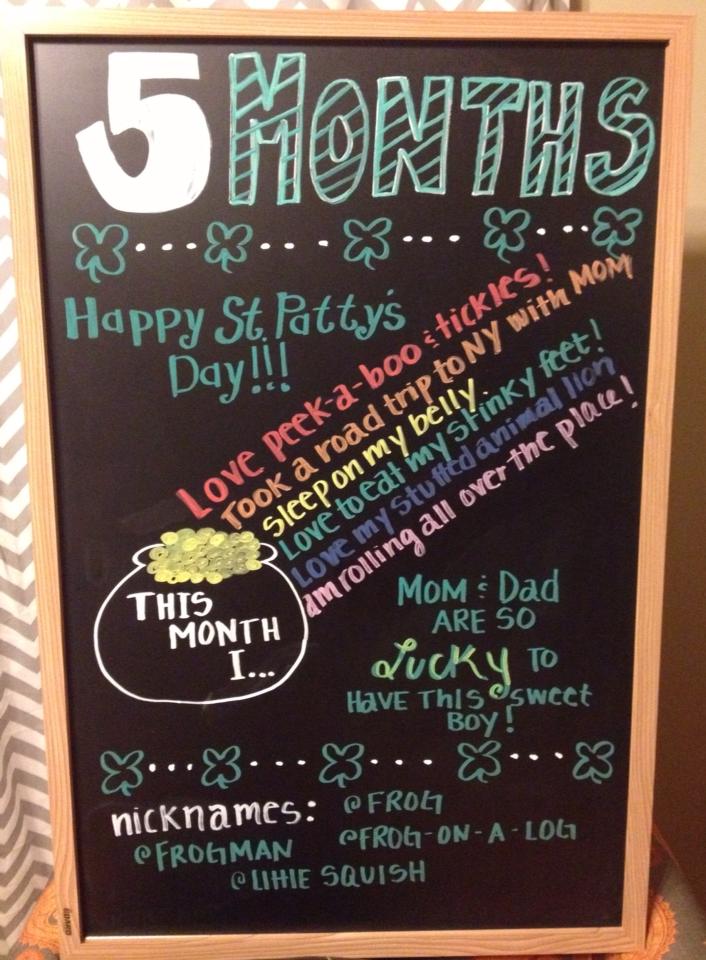 5 MONTHS
Happy St. Patty's
Day!!!
Love peek-a-boo & tickles!
Took a road trip to NY with MOM
Sleep on my belly.
Love to eat my stinky feet!
Love my stuffed animal lion
am rolling all over the place!
THIS
MONTH
I...
MOM & Dad
ARE SO
Lucky TO
HAVE THIS sweet
BOY!
nicknames: @FROG
@FROGMAN @FROG-ON-A-LOG
@LITTLE SQUISH